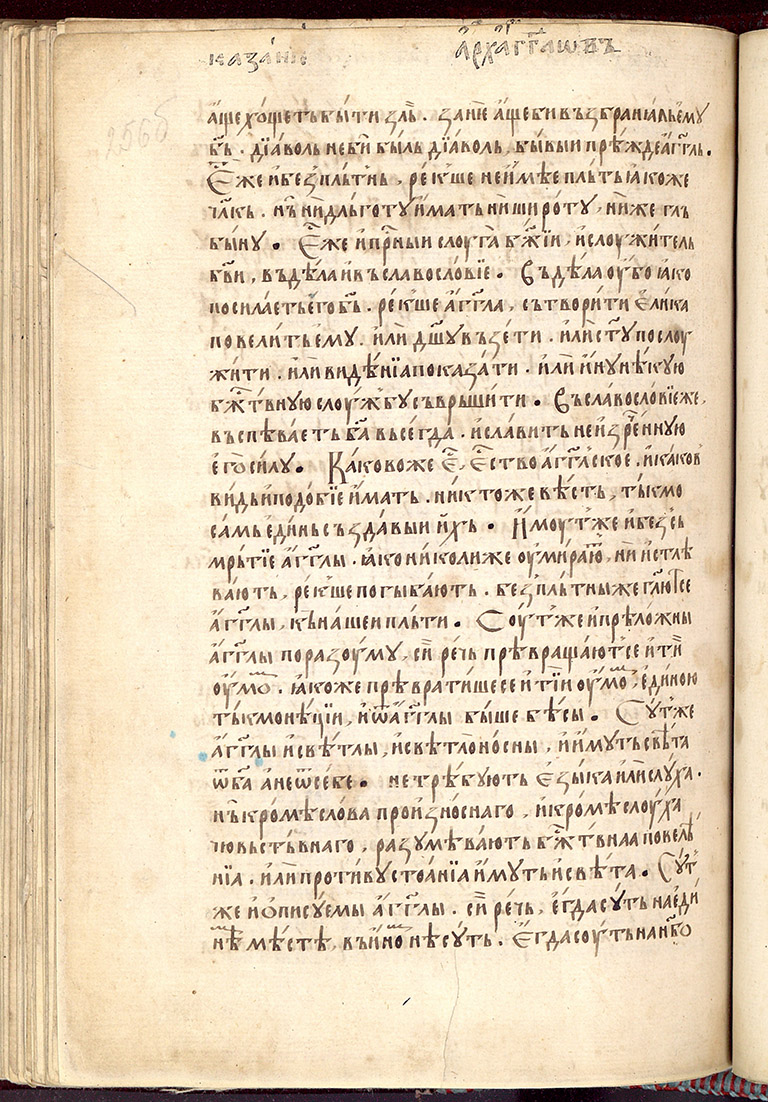 казанїе архагг҃лѡвь
256б
аще хощеть быти злы҆. зане аще би възбраниль ему
бь҃. дїаволь не би быль дїаволь, бывыи прѣжде агг҃ль.
Е҆с҃ же и без пльтнь, рекше не имѣе пльть ꙗкоже
чл҃кь. нь ни дльготу имать ни широту, ниже глъ
быну. Е҆с҃ же и прⷭ҇ныи слоуга бж҃їи, и слоужитель
бж҃їи, въ дѣла и въ славословїе. Въ дѣла оубо ꙗко
посилаеть его бь҃. рекше агг҃ла, сътворити елика
повелить ему. или дш҃у възети. или ст҃у послоу
жити. или видѣнїа показати. или ину нѣкую
бж҃твьную слоужбу съврьшити. Въ славословїе же,
въспѣваеть ба҃ вьсегда. и славить неизреⷱ҇нную
его силу. Каково же е҆с҃ ество агг҃лское. и каковь
видь и подобїе имать. никтоже вѣсть, тькмо
самь единь създавыи ихь. Имоут же и бесь
мрьтїе агг҃лы. ꙗко николиже оумираюⷮ, ни истлѣ
вають, рекше погыбають. бесплътныи же гл҃ютсе
агг҃лы, къ нашеи пльти. Соут же и прѣложны
агг҃лы по разоуму, си речь прѣвращаютсе и ти
оумоⷨ. ꙗкоже прѣвратишесе и тїи оумоⷨ, единою
тькмо нѣцїи, и ѿ агг҃лы быше бѣсы. Сут же
агг҃лы и свѣтлы, и свѣтлоносны, и имуть свѣта
ѿ ба҃ а не ѿ себе. не трѣбують езыка или слуха.
нь кромѣ слова произноснаго, и кромѣ слоуха
чювьствьнаго, разумѣвають бж҃твнаа повелѣ
нїа. или противустоанїа имуть и свѣта. Сут
же и описуемы агг҃лы. си речь, егда суть на еди
нѣⷨ мѣстѣ, въ иноⷨ нѣсуть. Егда соуть на нб҃о